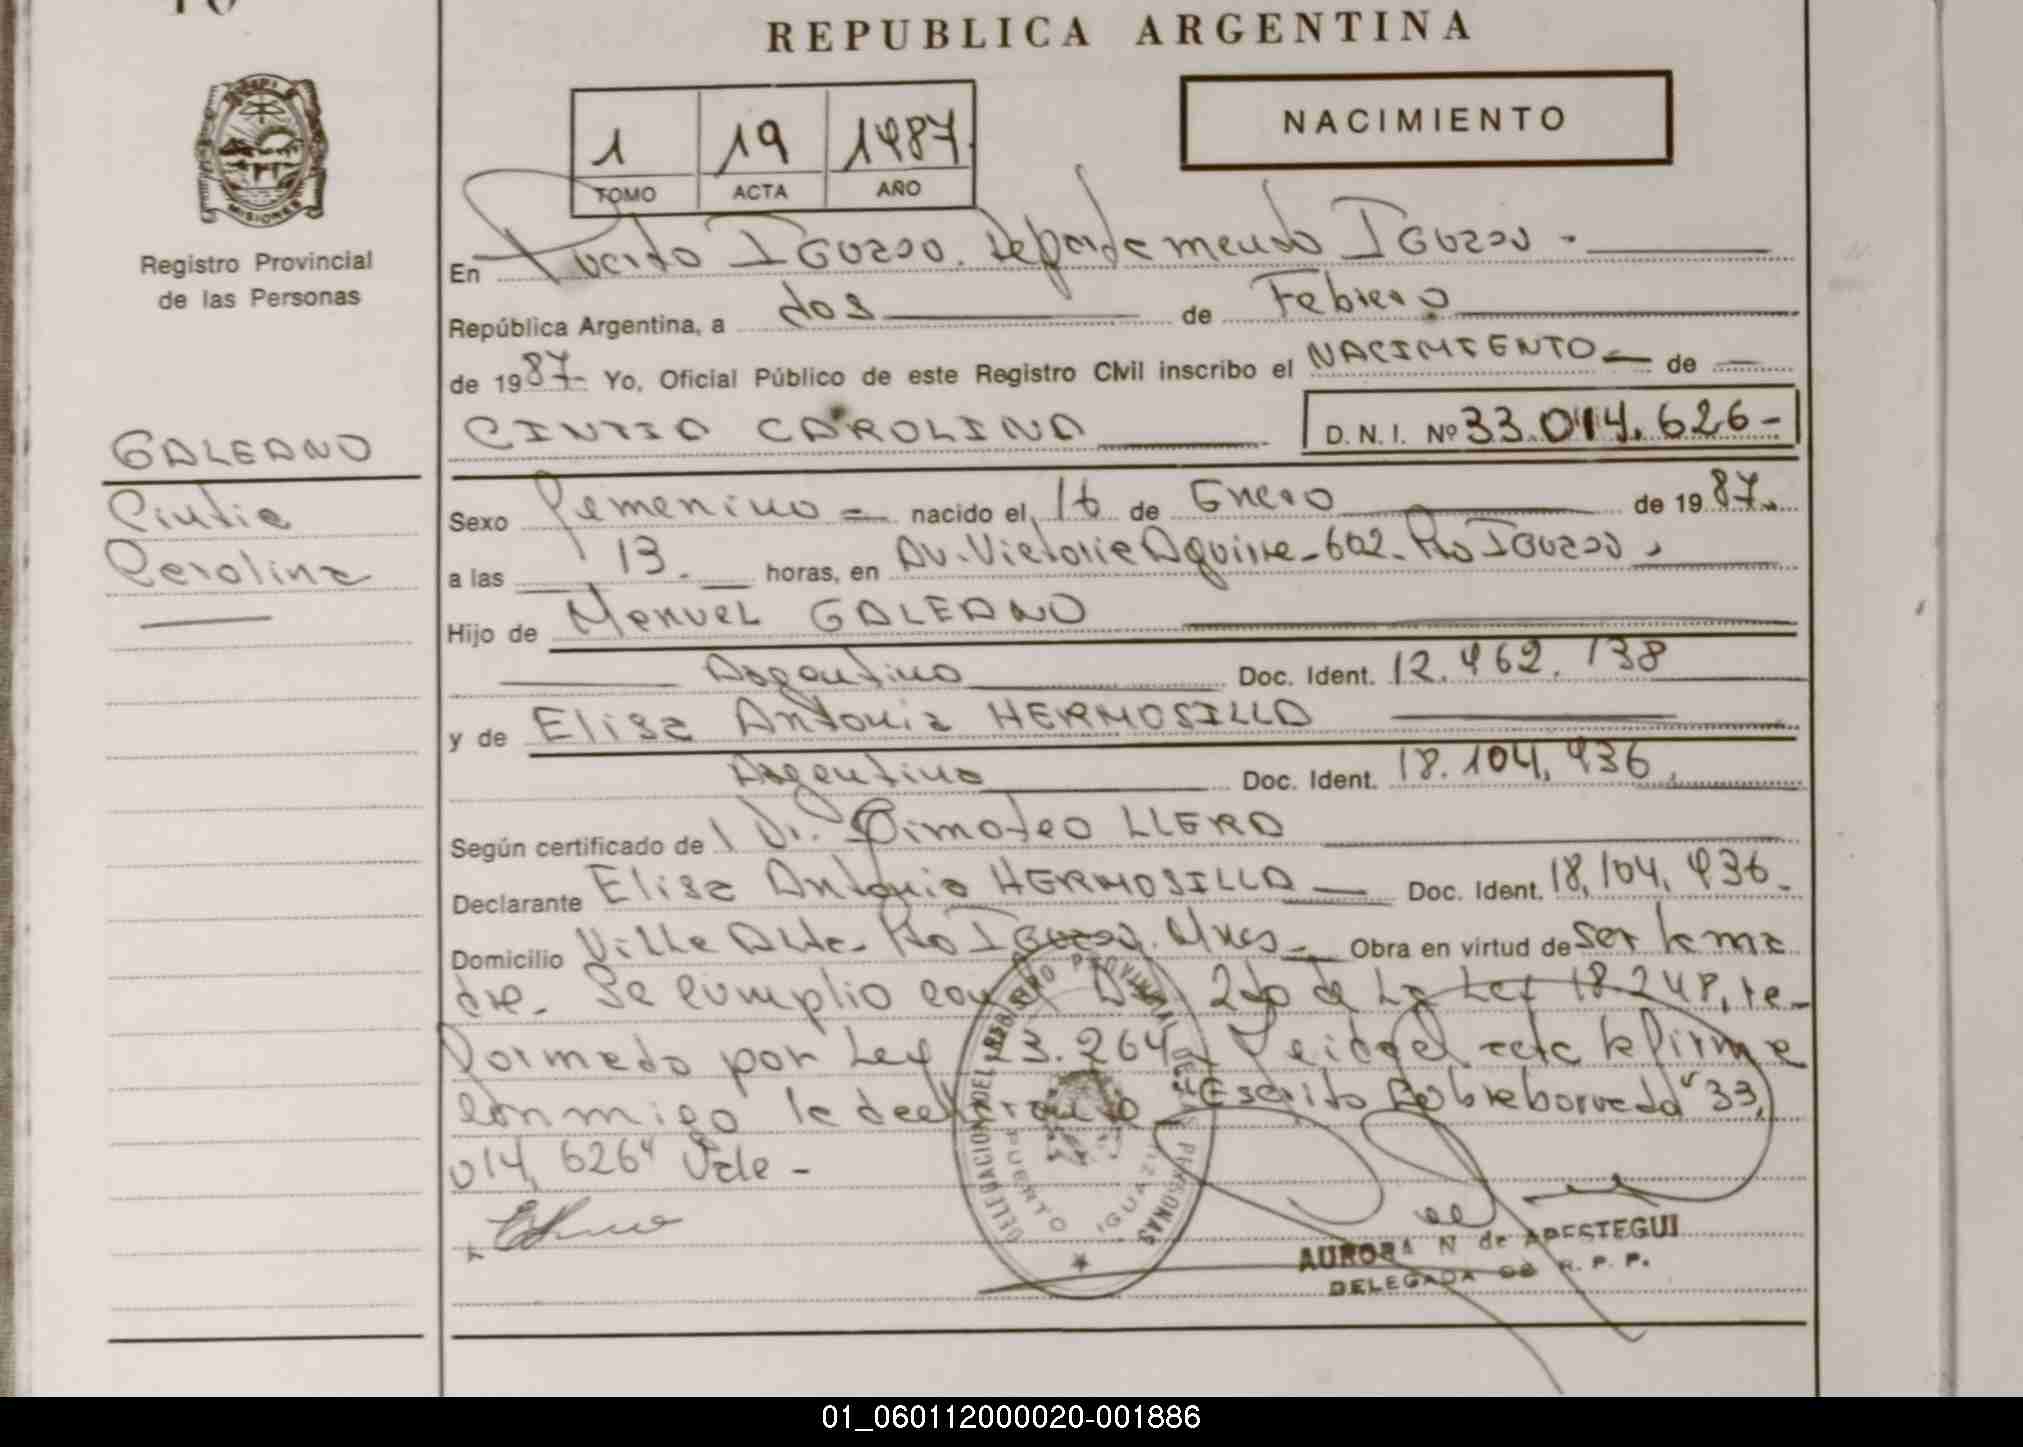 REPUBLICA ARGENTINA
NACIMIENTO
1 19 1987
TOMO ACTA AÑO
MISIONES
Registro Provincial
de las Personas
En Puerto IGuazu. Departamento IGuazu -
República Argentina, a dos de Febrero
de 1987- Yo, Oficial Público de este Registro Civil inscribo el NACIMIENTO — de
CINTIA CAROLINA
D. N. I. Nº 33.014.626-
GALEANO
Cintia
Carolina
Sexo femenino = nacido el 16 de Enero de 1987.
a las 13. horas, en Av. Victoria Aguirre-602-Pto IGuazu
Hijo de Manuel GALEANO
Argentino Doc. Ident. 12.462.138
y de Elisa Antonia HERMOSILLA
Argentina Doc. Ident. 18.104.936
Según certificado de Dr. Timoteo LLERA
Declarante Elisa Antonia HERMOSILLA — Doc. Ident. 18.104.936-
Domicilio Villa Alta- Pto IGuazu. Mnes- Obra en virtud de ser la ma
dre- Se cumplio con el 2do de La Ley 18.248, re-
formada por Ley 23.264. Leida el acta la firma
conmigo la declarante Escrito sobreborrado "33,
014,626" Vale -
DELEGACION DEL REGISTRO PROVINCIAL DE LAS PERSONAS
PUERTO IGUAZU
AURORA N de APESTEGUI
DELEGADA DE R. P. P.
01_060112000020-001886